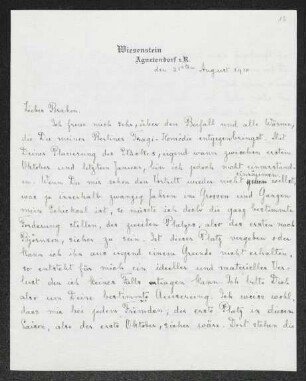 Wiesenstein
Agnetendorf i.R.
den 21ten August 1910
Lieber Brahm.
Ich freue mich sehr, über den Beifall und alle Wärme,
die Du meiner Berliner Tragi-Komödie entgegenbringst. Mit
Deiner Placierung des Stückes, irgend wann zwischen erstem
Oktober und letztem Januar, bin ich jedoch nicht einverstanden
. Wenn Du mir schon den Vortritt wieder nicht willst,
was ja innerhalb zwanzig Jahren im Grossen und Ganzen
mein Schicksal ist, so müsste ich doch die ganz bestimmte
Forderung stellen, des zweiten Platzes, also des ersten nach
, sicher zu sein. Ist dieser Platz vergeben oder
kann ich ihn aus irgend einem Grunde nicht erhalten,
so entsteht für mich ein ideeller und materieller Verlust
den ich keines Falls tragen kann. Ich bitte Dich
also um Deine bestimmte Äusserung. Ich weiss wohl,
dass mir bei jedem Fremden, der erste Platz in dieser
Saison, also der erste Oktober, sicher wäre. Dort stehen die